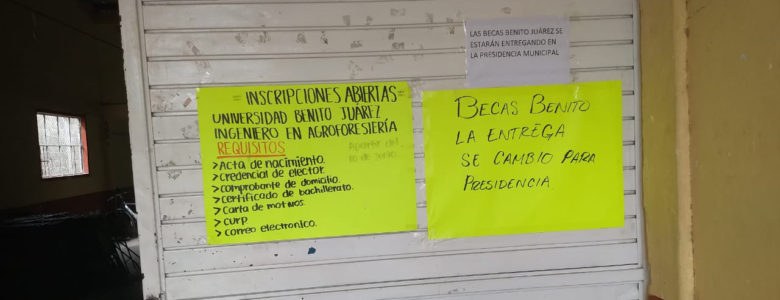 LAS BECAS BENITO JUÁREZ SE
ESTARÁN ENTREGANDO EN
LA PRESIDENCIA MUNICIPAL
= INSCRIPCIONES ABIERTAS=
UNIVERSIDAD BENITO JUÁREZ
INGENIERO EN AGROFORESTERÍA
REQUISITOS
Apartir del
10 de Junio
>Acta de nacimiento.
>Credencial de elector.
>comprobante de domicilio.
>certificado de bachillerato.
>Carta de motivos.
>CURP
>correo electronico.
BECAS BENITO
LA ENTREGA
SE CAMBIO PARA
PRESIDENCIA